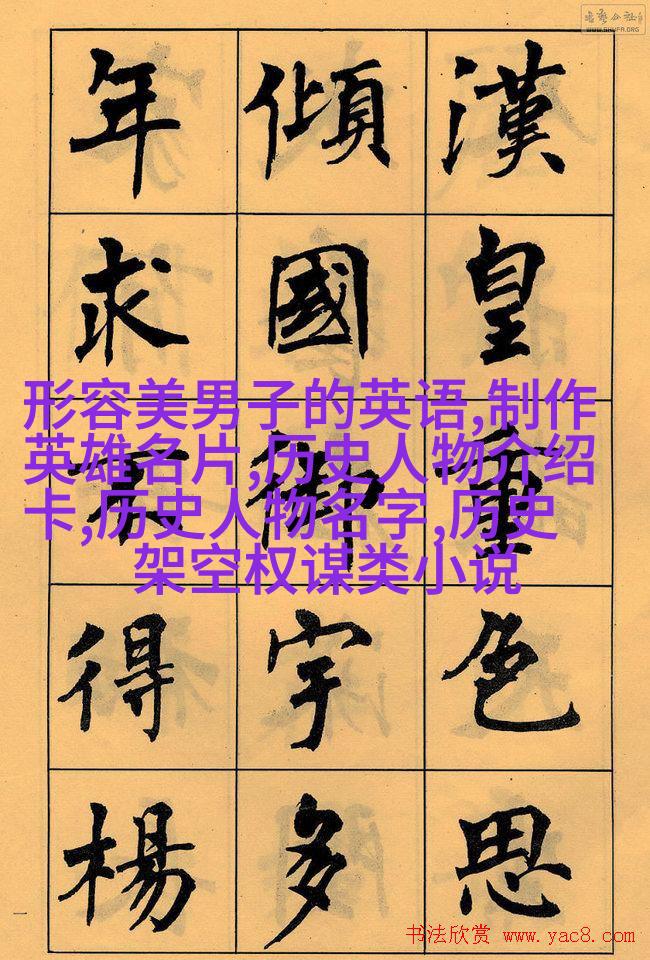 书艺公社
WWW.SHUFA.ORG
漢皇重色思
傾國御宇多
年求得楊
一
形容美男子的英语,制作
英雄名片,历史人物介绍
卡,历史人物名字,历史
架空权谋类小说
书法欣赏 www.yac8.com